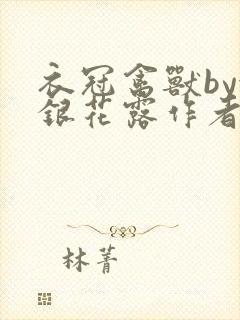 衣冠禽獸by
銀花露作者
林菁